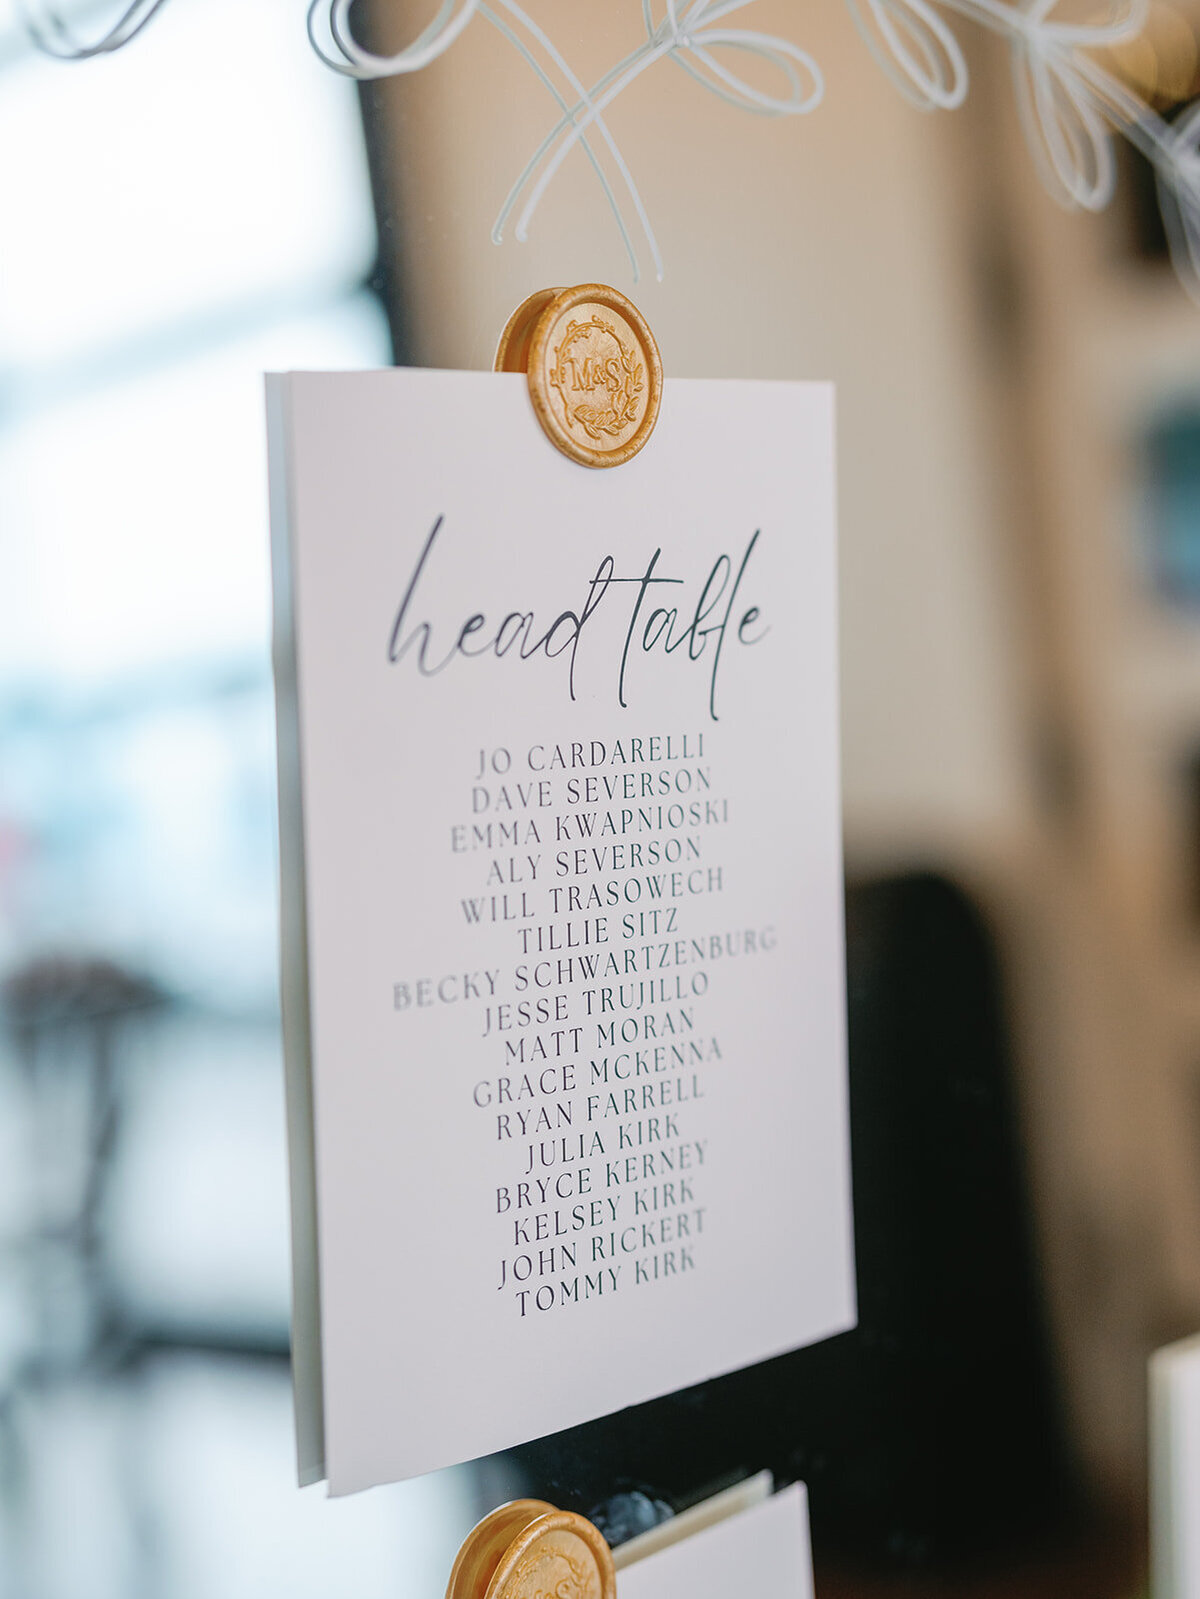 M&S
head table
JO CARDARELLI
DAVE SEVERSON
EMMA KWAPNIOSKI
ALY SEVERSON
WILL TRASOWECH
TILLIE SITZ
BECKY SCHWARTZENBURG
JESSE TRUJILLO
MATT MORAN
GRACE MCKENNA
RYAN FARRELL
JULIA KIRK
BRYCE KERNEY
KELSEY KIRK
JOHN RICKERT
TOMMY KIRK
M&S